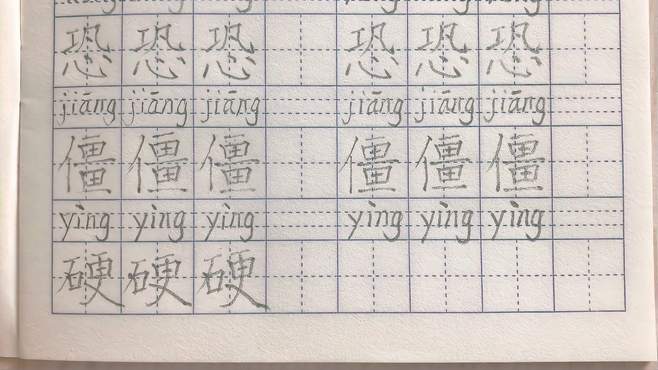 恐 恐 恐 恐 恐 恐
jiāng jiāng jiāng jiāng jiāng jiāng
僵 僵 僵 僵 僵 僵
yìng yìng yìng yìng yìng yìng
硬 硬 硬